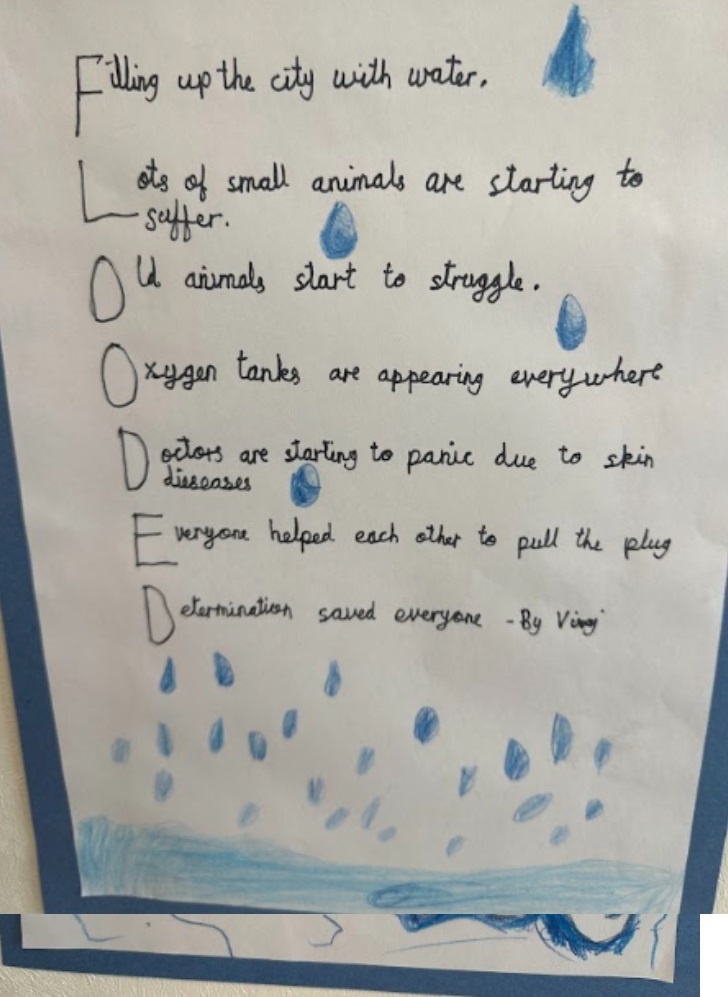 Filling up the city with water.
Lots of small animals are starting to
suffer.
Old animals start to struggle.
Oxygen tanks are appearing everywhere
Doctors are starting to panic due to skin
dieseases
Everyone helped each other to pull the plug
Determination saved everyone - By